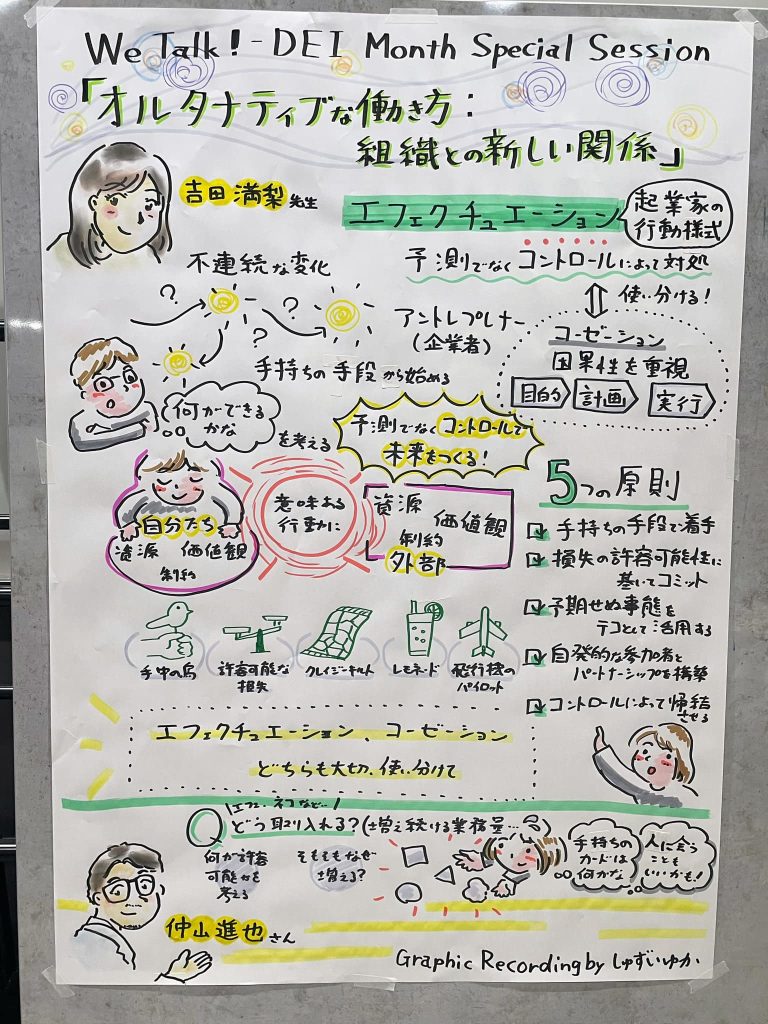 We Talk! - DEI Month Special Session
「オルタナティブな働き方:
組織との新しい関係」
吉田満梨先生
エフェクチュエーション
起業家の
行動様式
予測でなくコントロールによって対処
使い分ける!
不連続な変化
?
?
?
アントレプレナー
(企業者)
コーゼーション
因果性を重視
目的
計画
実行
手持ちの手段から始める
何ができる
かな
を考える
予測でなくコントロールで
未来をつくる!
自分たち
資源 価値観
制約
意味ある
行動に
資源
価値観
制約
外部
5つの原則
手持ちの手段で着手
損失の許容可能性に
基いてコミット
予期せぬ事態を
テコとして活用する
自発的な参加者と
パートナーシップを構築
コントロールによって帰結
させる
手中の鳥
許容可能な
損失
クレイジーキルト
レモネード
飛行機の
パイロット
エフェクチュエーション、コーゼーション
どちらも大切、使い分けて
Q
どう取り入れる?(増え続ける業務量…
何が許容
可能かを
考える
そもそもなぜ
増える?
手持ちの
カードは
何かな
人に会う
ことも
いいかも!
仲山進也さん
Graphic Recording by しゅずいゆか